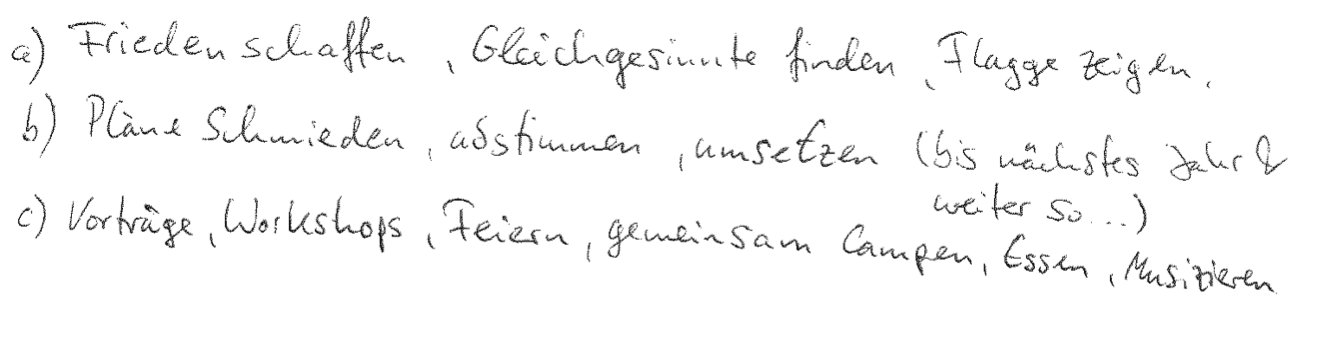 a) Frieden schaffen, Gleichgesinnte finden, Flagge zeigen.
b) Pläne Schmieden, abstimmen, umsetzen (bis nächstes Jahr &
weiter so...)
c) Vorträge, Workshops, Feiern, gemeinsam Campen, Essen, Musizieren